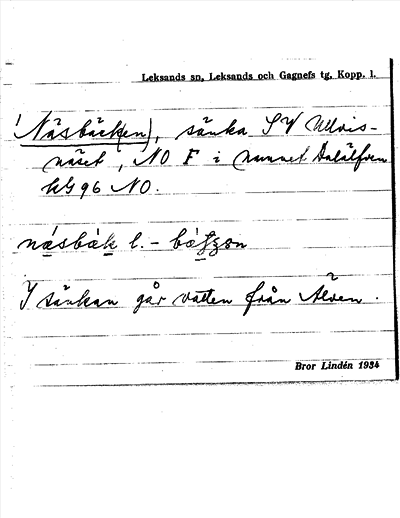 Leksands sn, Leksands och Gagnefs tg, Kopp. l.
Näsbäck(en), sänka SV Ulvis-
näset, NO F i namnet Dalälfven
KG 96 NO.
näsbäk l. - 
I sänkan går vatten från Älven.
Bror Lindén 1934